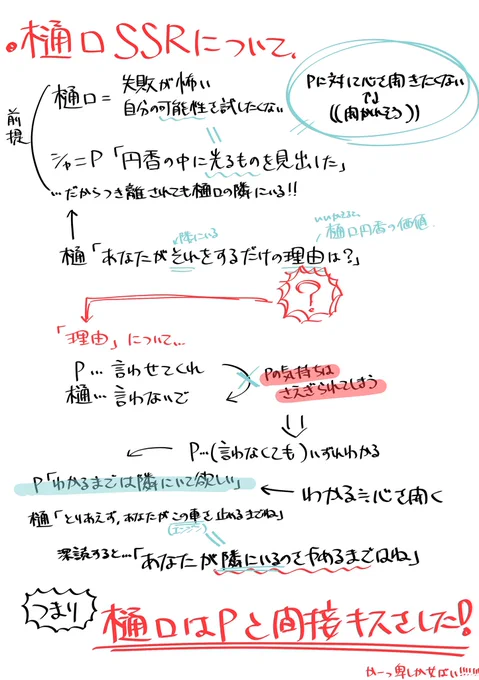 ・樋口SSRについて、
前提
樋口=
失敗が怖い
自分の可能性を試したくない
Pに対して心を開きたくない
↑↓
((開かれそう))
シャニP「円香の中に光るものを見出した」
…だからつき離されても樋口の隣にいる!!
隣にいる
いいかえると、
樋口円香の価値
樋「あなたがそれをするだけの理由は?」
?
「理由」について…
P…言わせてくれ
樋…言わないで
Pの気持ちは
さえぎられてしまう
P…(言わなくても)いずれわかる
P「わかるまでは隣にいて欲しい」
わかる≒心を開く
樋「とりあえず,あなたがこの車を止めるまでね」
(エンジン)
深読すると…「あなたが隣にいるのをやめるまではね」
つまり
樋口はPと間接キスをした!
かーっ卑しか女ばい!!!!!